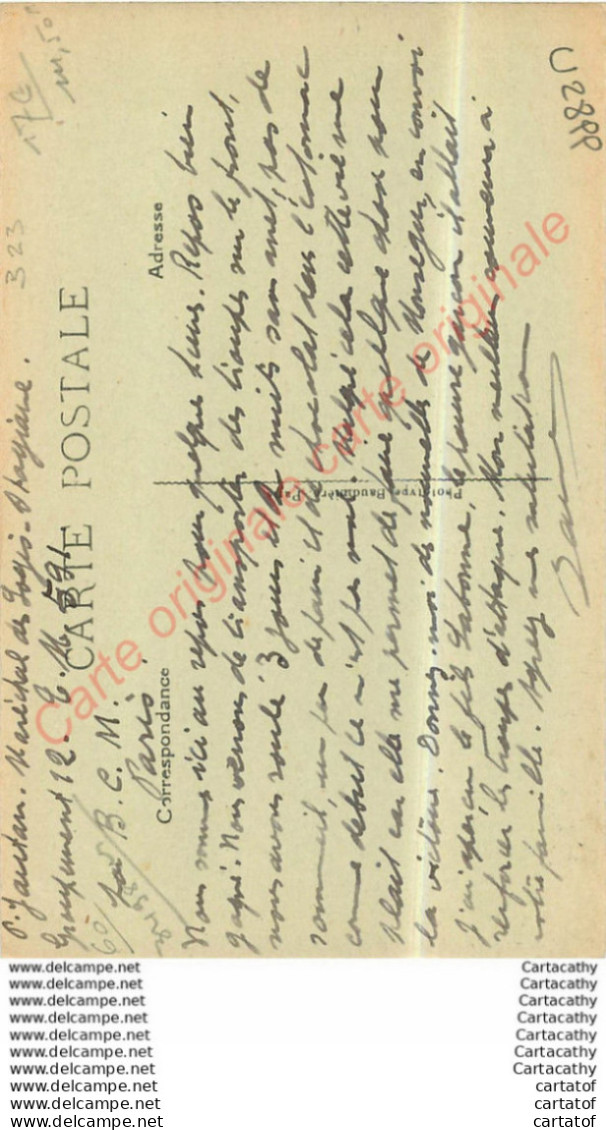 P. Jautan. Maréchal des Logis-
Groupement 12. C. M.
par B. C. M.
Paris.
B 23
17C
U2899
CARTE POSTALE
Correspondance
Adresse
Phototypie Baudinière, Paris
Nous sommes ici au repos pour quelques heures. Repos bien
gagné. Nous venons de transporter des troupes sur le front,
nous avons roulé 3 jours et nuits sans arrêt, pas de
sommeil, un peu de pain et de chocolat dans l'estomac
comme début ce n'est pas mal. Malgré cela cette vie me
plait car elle me permet de faire quelque chose pour
la victoire. Donnez-moi de nouvelles de Monségur, en convoi
j'ai aperçu le fils Labonne, le pauvre garçon il allait
renforcer les troupes d'attaque. Mon meilleur souvenir à
votre famille. Agréez mes salutations
Carte originale carte originale
www.delcampe.net Cartacathy
www.delcampe.net Cartacathy
www.delcampe.net Cartacathy
www.delcampe.net Cartacathy
www.delcampe.net Cartacathy
www.delcampe.net Cartacathy
www.delcampe.net Cartacathy
www.delcampe.net cartatof
www.delcampe.net cartatof
www.delcampe.net cartatof